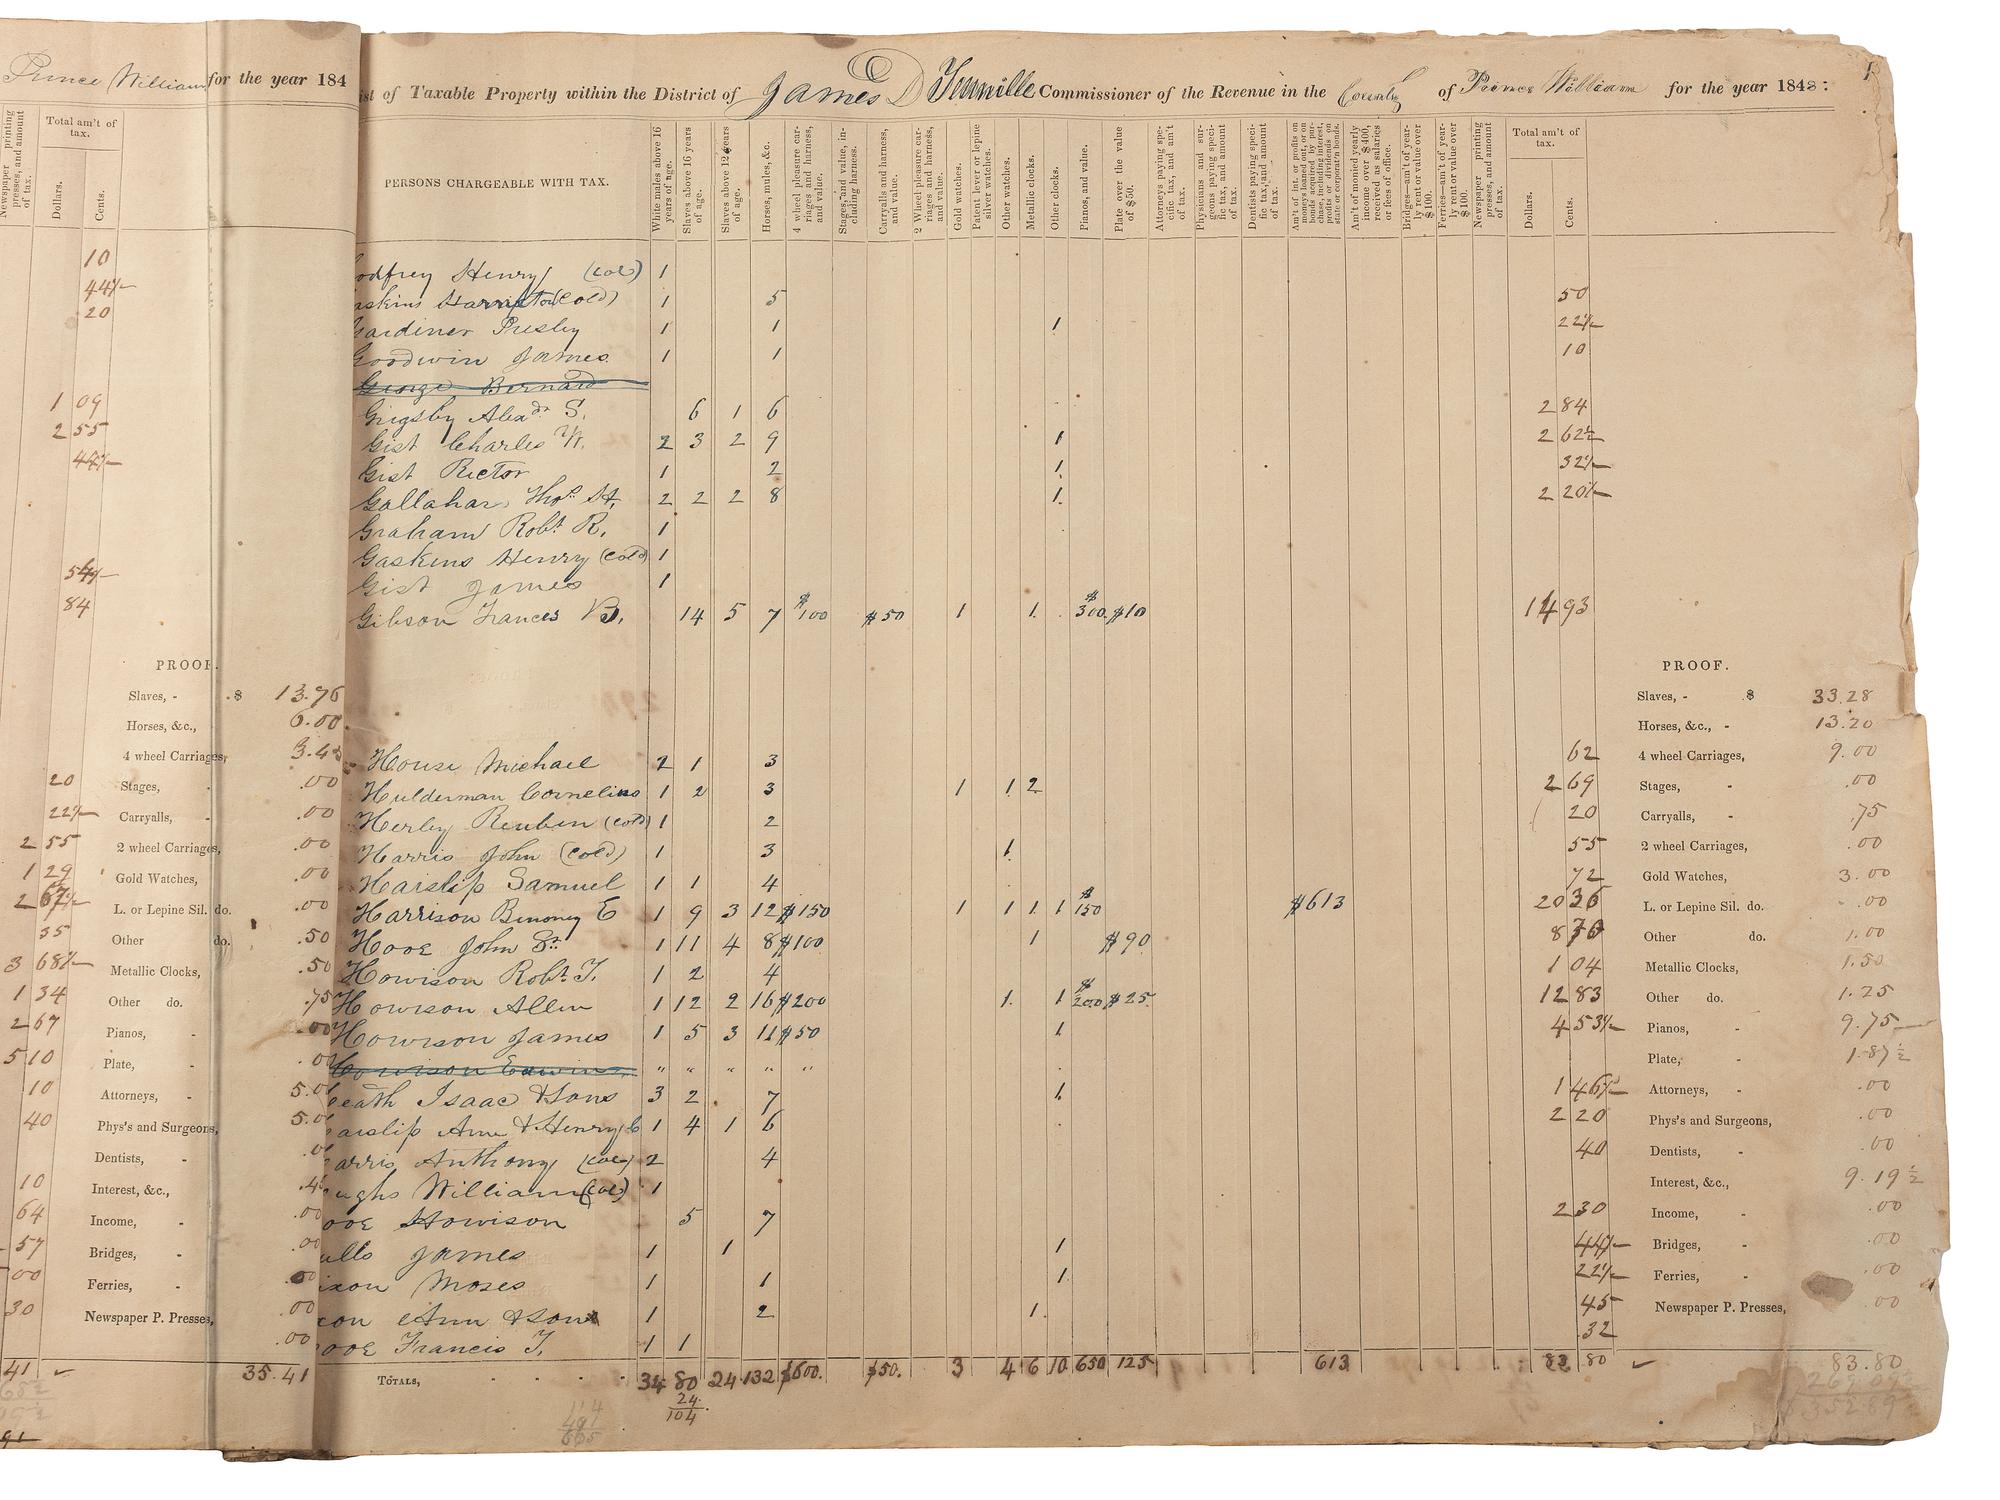 Prince William for the year 184
Newspaper printing presses, and amount of tax.
Total am't of tax.
Dollars.
Cents.
10
44½
20
1 09
2 55
44½
54½
84
20
22½
2 55
1 29
2 67½
35
3 68½
1 34
2 67
5 10
10
40
10
64
57
00
30
41
PROOF.
Slaves, - $ 13.76
Horses, &c., 6.00
4 wheel Carriages,
Stages, .00
Carryalls, .00
2 wheel Carriages, .00
Gold Watches, .00
L. or Lepine Sil. do. .00
Other do. .50
Metallic Clocks, .50
Other do. .75
Pianos, .00
Plate,
Attorneys,
Phys's and Surgeons,
Dentists,
Interest, &c.,
Income, .00
Bridges, .00
Ferries, .00
Newspaper P. Presses, .00
.00
35.41
ist of Taxable Property within the District of James D Tennille Commissioner of the Revenue in the County of Prince William for the year 1848:
PERSONS CHARGEABLE WITH TAX.
White males above 16 years of age.
Slaves above 16 years of age.
Slaves above 12 years of age.
Horses, mules, &c.
4 wheel pleasure carriages and harness, and value.
Stages, and value, including harness.
Carryalls and harness, and value.
2 Wheel pleasure carriages and harness, and value.
Gold watches.
Patent lever or lepine silver watches.
Other watches.
Metallic clocks.
Other clocks.
Pianos, and value.
Plate over the value of $50.
Attorneys paying specific tax, and am't of tax.
Physicians and surgeons paying specific tax, and amount of tax.
Dentists paying specific tax, and amount of tax.
Am't of int. or profits on moneys loaned out, or on bonds acquired by purchase, including interest, profits or dividends on state or corporat'n bonds.
Am't of monied yearly income over $400, received as salaries or fees of office.
Bridges—am't of yearly rent or value over $100.
Ferries—am't of yearly rent or value over $100.
Newspaper printing presses, and amount of tax.
Total am't of tax.
Dollars.
Cents.
odfrey Henry (col) 1
askins (Cold) 1 5 50
Gardiner Presley 1 1 1 22½
Goodwin James 1 1 10
George Bernard
Grigsby Alexdr S. 6 1 6 2 84
Gist Charles W. 2 3 2 9 1 2 62½
Gist Rector 1 2 1 32½
Gallahar Thos H. 2 2 2 8 1 2 20½
Graham Robt R. 1
Gaskins Henry (cold) 1
Gist James 1
Gibson Frances B. 14 5 7 $100 $50 1 1 $300 $10 14 93
House Michael 2 1 3 62
Hulderman Cornelius 1 2 3 1 1 2 2 69
Herley Reuben (cold) 1 2 20
Harris John (cold) 1 3 1 55
Haislip Samuel 1 1 4 72
Harrison E 1 9 3 12 $150 1 1 1 1 $150 $613 20 36
Hooe John Sr. 1 11 4 8 $100 1 $90 8 76
Howison Robt T. 1 2 4 1 04
Howison Allen 1 12 2 16 $200 1 1 $200 $25 12 83
Howison James 1 5 3 11 $50 1 4 53½
Howison Edwin " " " " "
eath Isaac & Sons 3 2 7 1 1 46½
aislip Ann & Henry 1 4 1 6 2 20
arris Anthony (col) 2 4 40
ughs William (col) 1
ooe Howison 5 7 2 30
ulls James 1 1 1 44½
ixon Moses 1 1 1 22½
xon Ann & Son 1 2 1 45
ooe Francis T. 1 1 .32
TOTALS, 34 80 24 132 $600. $50. 3 4 6 10 650 125 613 83 80
24
104
PROOF.
Slaves, - $ 33.28
Horses, &c., - 13.20
4 wheel Carriages, 9.00
Stages, - .00
Carryalls, - .75
2 wheel Carriages, .00
Gold Watches, 3.00
L. or Lepine Sil. do. .00
Other do. 1.00
Metallic Clocks, 1.50
Other do. 1.25
Pianos, - 9.75
Plate, - 1.87½
Attorneys, - .00
Phys's and Surgeons, .00
Dentists, - .00
Interest, &c., 9.19½
Income, - .00
Bridges, - .00
Ferries, - .00
Newspaper P. Presses, .00
83.80
269.09½
$352.89½